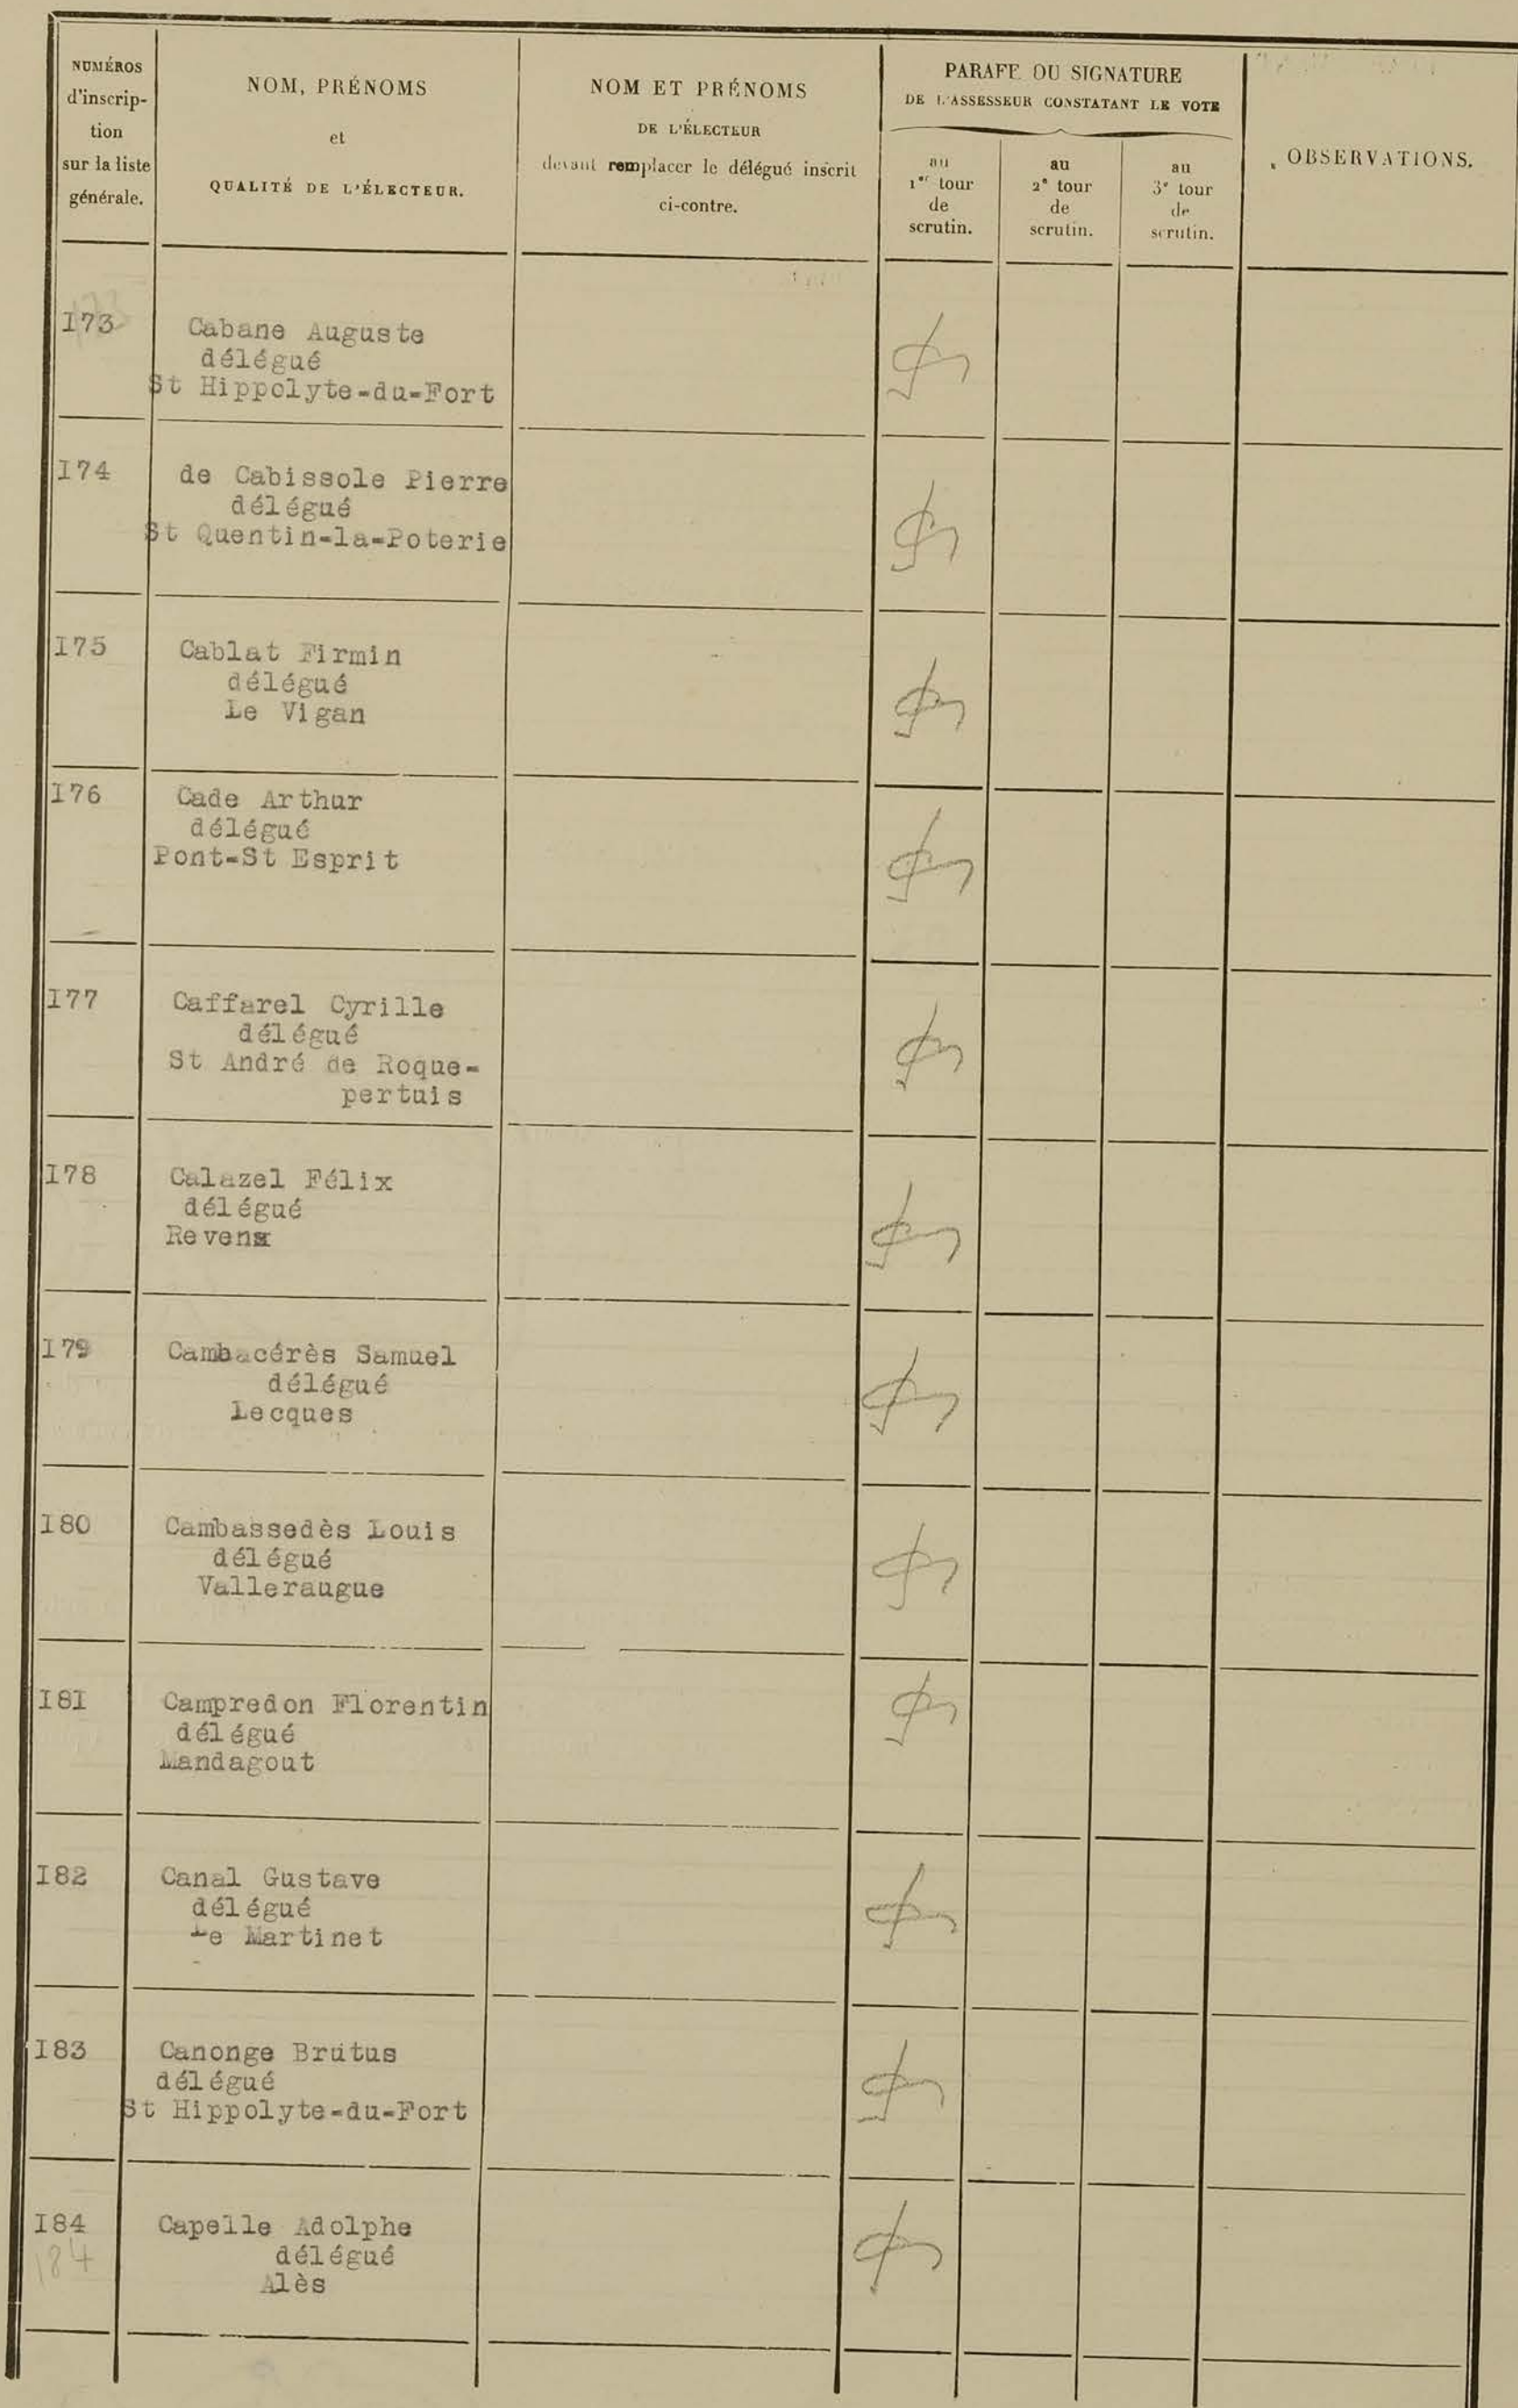 NUMÉROS
d'inscrip-
tion
sur la liste
générale.
NOM, PRÉNOMS
et
QUALITÉ DE L'ÉLECTEUR.
NOM ET PRÉNOMS
DE L'ÉLECTEUR
devant remplacer le délégué inscrit
ci-contre.
PARAFE OU SIGNATURE
DE L'ASSESSEUR CONSTATANT LE VOTE
au
1er tour
de
scrutin.
au
2e tour
de
scrutin.
au
3e tour
de
scrutin.
OBSERVATIONS.
I73
Cabane Auguste
délégué
St Hippolyte-du-Fort
I74
de Cabissole Pierre
délégué
St Quentin-la-Poterie
I75
Cablat Firmin
délégué
Le Vigan
I76
Cade Arthur
délégué
Pont-St Esprit
I77
Caffarel Cyrille
délégué
St André de Roque-
pertuis
I78
Calazel Félix
délégué
Revens
I79
Cambacérès Samuel
délégué
Lecques
I80
Cambassedès Louis
délégué
Valleraugue
I81
Campredon Florentin
délégué
Mandagout
I82
Canal Gustave
délégué
Le Martinet
I83
Canonge Brutus
délégué
St Hippolyte-du-Fort
I84
184
Capelle Adolphe
délégué
Alès